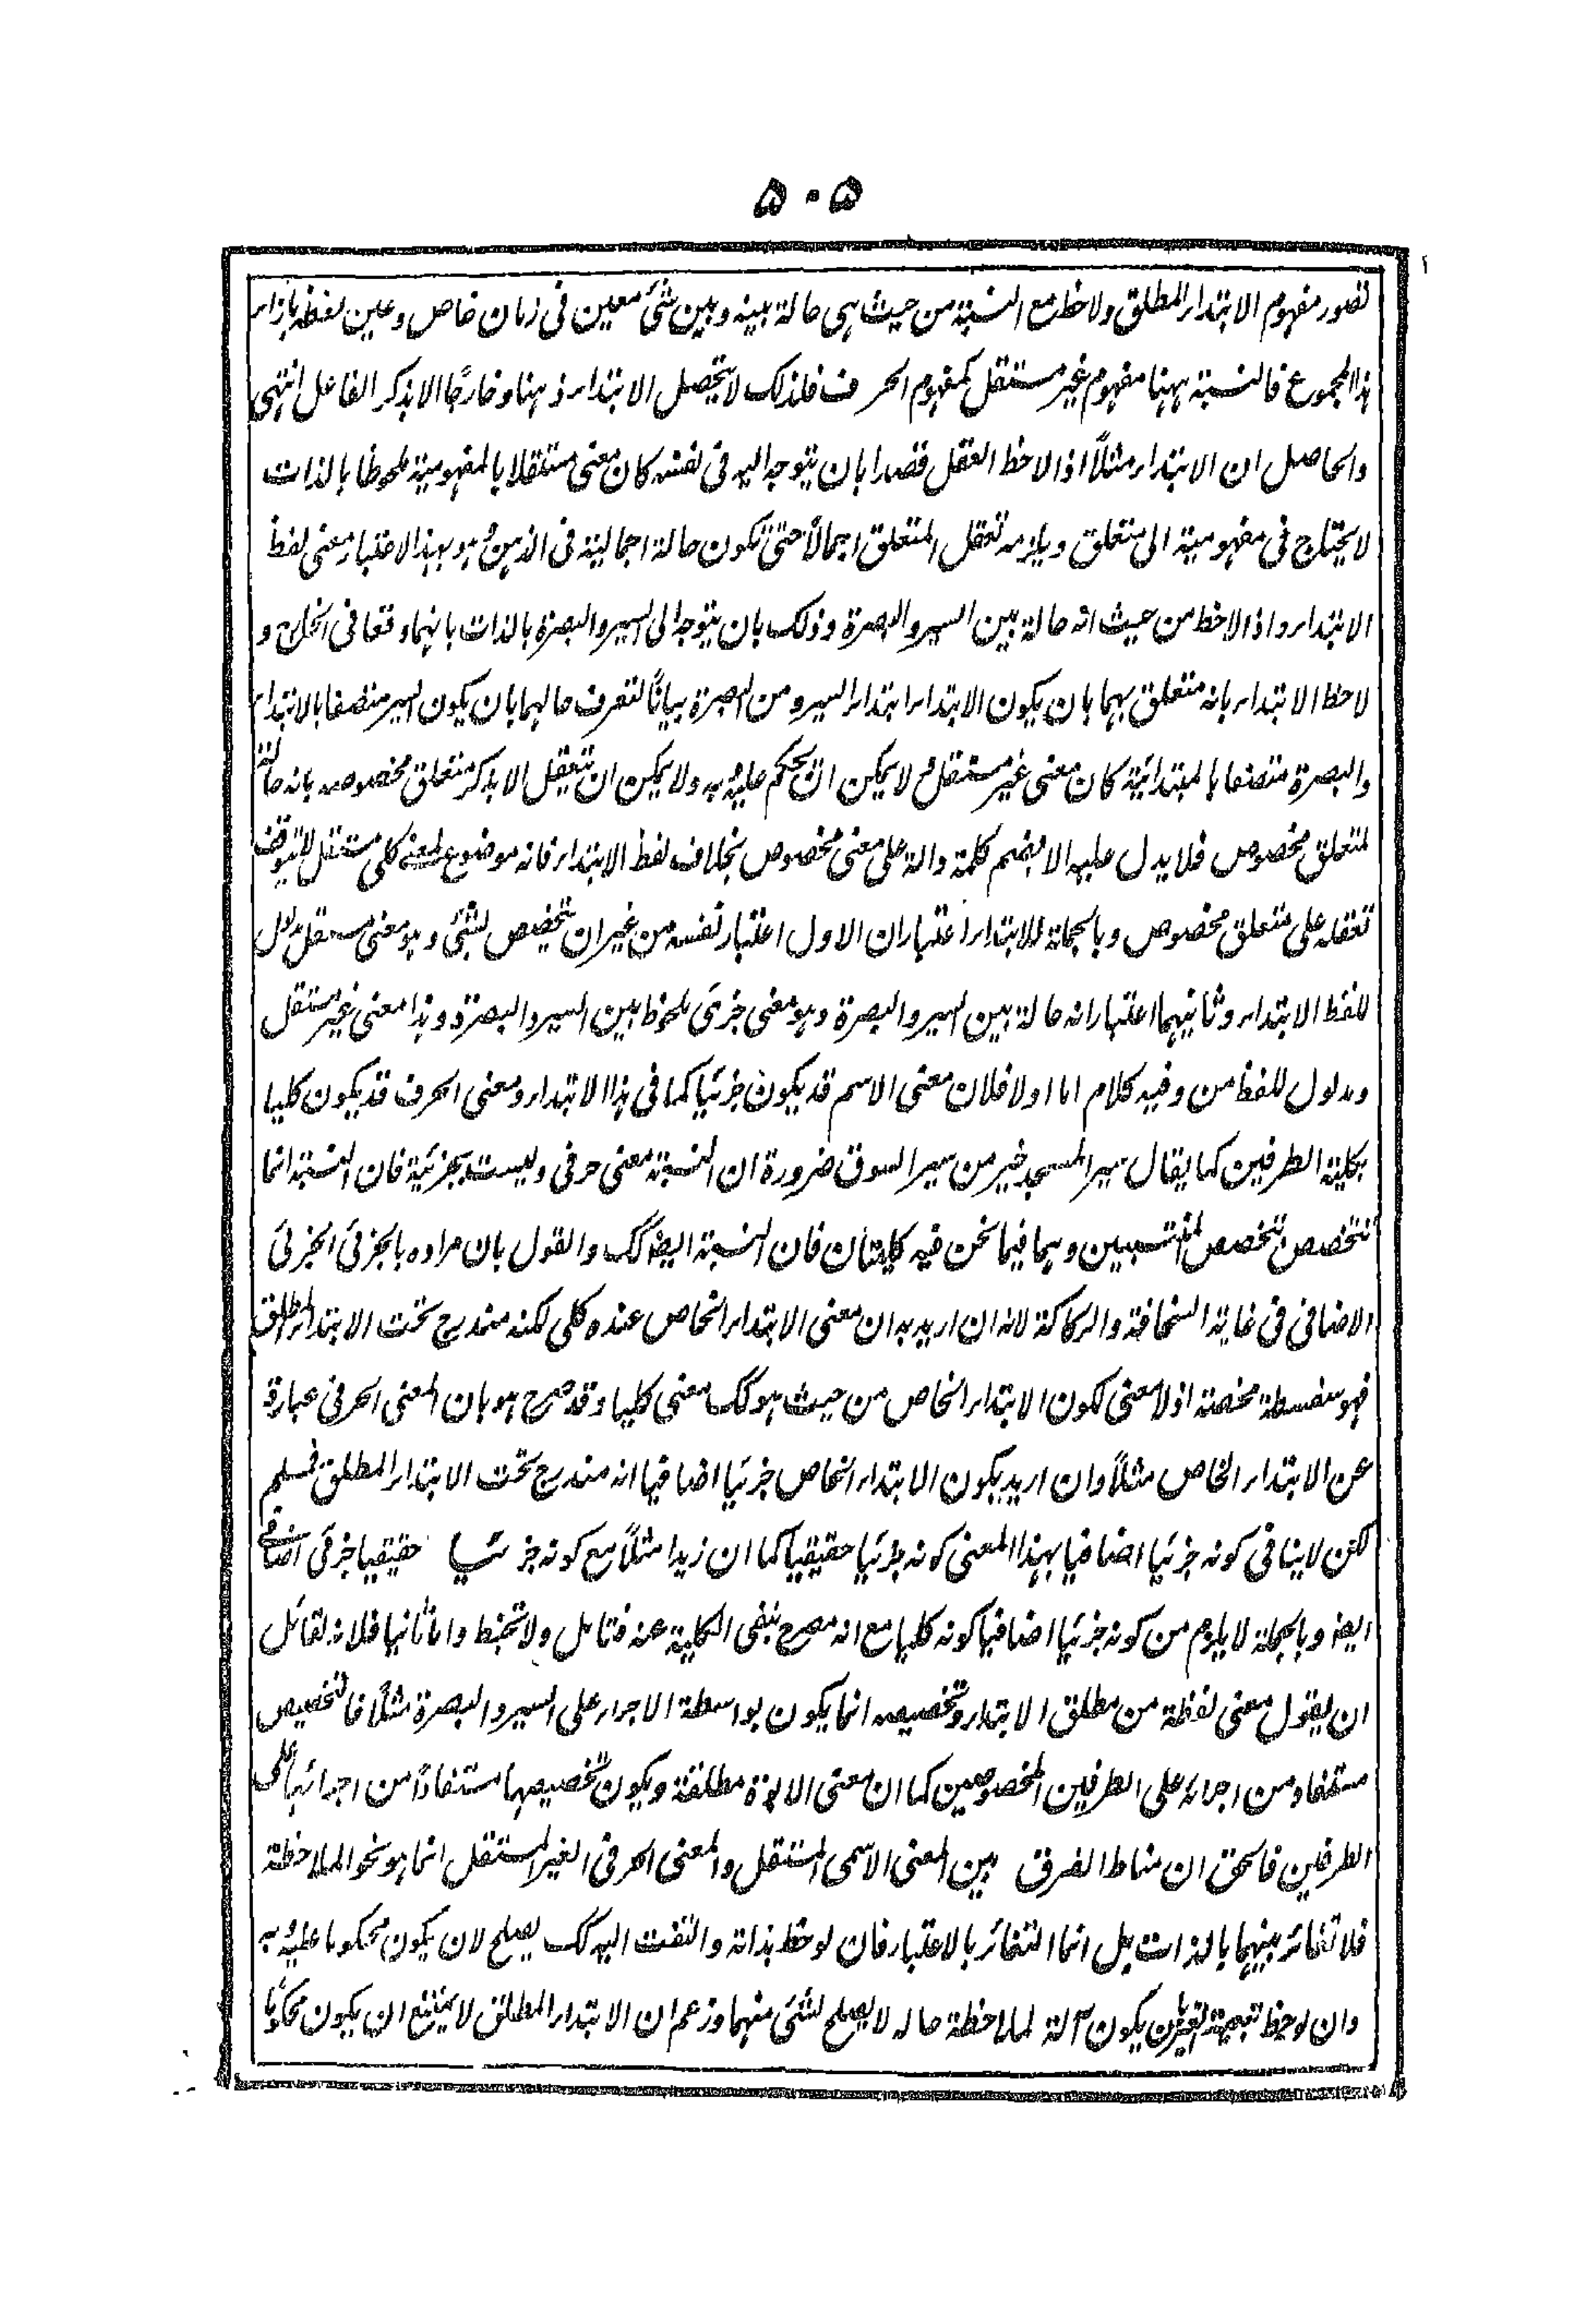 ۵۰۵
تصور مفهوم الابتداء المطلق ولاحظ مع النسبة من حيث هى حالة بينه وبين شئ معين فى زمان خاص وعين لفظه بازاء
هذا المجموع فالنسبة ههنا مفهوم غير مستقل كمفهوم الحرف فلذلك لا يتحصل الابتداء ذهنا وخارجًا الا بذكر الفاعل انتهى
والحاصل ان الابتداء مثلاً اذا لاحظ العقل قصدا بان يتوجه اليه فى نفسه كان معنى مستقلا بالمفهومية ملحوظا بالذات
لا يحتاج فى مفهومية الى متعلق ويلزمه تعقل المتعلق اجمالاً حتى تكون حالة اجمالية فى الذهن وهو بهذا الاعتبار معنى لفظ
الابتداء واذا لاحظ من حيث انه حالة بين السير والبصرة وذلك بان يتوجه الى السير والبصرة بالذات بانهما وقعا فى الخارج و
لاحظ الابتداء بانه متعلق بهما بان يكون الابتداء ابتداء السير ومن البصرة بيانًا لتعرف حالهما بان يكون السير متصفا بالابتداء
والبصرة متصفا بالمبتدائية كان معنى غير مستقل لا يمكن ان يحكم عليه وبه ولا يمكن ان يتعقل الا بذكر متعلق مخصوصه بانه حالة
لمتعلق مخصوص فلا يدل عليه الا بضم كلمة دالة على معنى مخصوص بخلاف لفظ الابتداء فانه موضوع لمعنى كلى مستقل لا يتوقف
تعقله على متعلق مخصوص وبالجملة للابتداء اعتباران الاول اعتبار نفسه من غير ان يتخصص لشئ وهو معنى مستقل مدلول
للفظ الابتداء وثانيهما اعتبار انه حالة بين السير والبصرة وهو معنى جزئى ملحوظ بين السير والبصرة وهذا معنى غير مستقل
ومدلول للفظ من وفيه كلام اما اولا فلان معنى الاسم قد يكون جزئيا كما فى هذا الابتداء ومعنى الحرف قد يكون كليا
بكلية الطرفين كما يقال سير المسجد خير من سير السوق ضرورة ان النسبة معنى حرفى وليست بجزئية فان النسبة انما
تتخصص بتخصص المنتسبين وهما فيما نحن فيه كليتان فان النسبة ايضا كك والقول بان مراده بالجزئى الجزئى
الاضافى فى غاية السخافة والركاكة لانه ان اريد به ان معنى الابتداء الخاص عنده كلى لكنه مندرج تحت الابتداء المطلق
فهو سفسطة محضة اذ لا معنى لكون الابتداء الخاص من حيث هو كك معنى كليا وقد صرح هو بان المعنى الحرفى عبارة
عن الابتداء الخاص مثلاً وان اريد بكون الابتداء الخاص جزئيا اضافيا انه مندرج تحت الابتداء المطلق فمسلم
لكن لا ينافى كونه جزئيا اضافيا بهذا المعنى كونه جزئيا حقيقيا كما ان زيدا مثلاً مع كونه جزئيا حقيقيا جزئى اضافى
ايضا وبالجملة لا يلزم من كونه جزئيا اضافيا كونه كليا مع انه مصرح بنفى الكلية عنه فتامل ولا تخبط واما ثانيا فلانه لقائل
ان يقول معنى لفظة من مطلق الابتداء وتخصيصه انما يكون بواسطة الاجراء على السير والبصرة مثلاً فالتخصيص
مستفاد من اجرائه على الطرفين المخصوصين كما ان معنى الابوة مطلقة ويكون تخصيصها مستفاداً من اجرائها على
الطرفين فالحق ان مناط الفرق بين المعنى الاسمى المستقل والمعنى الحرفى الغير المستقل انما هو نحو الملاحظة
فلا تغائر بينهما بالذات بل انما التغائر بالاعتبار فان لوحظ بذاته والتفت اليه كك يصلح لان يكون محكوما عليه وبه
وان لوحظ تبعية لغيره بان يكون آلة لملاحظة حاله لا يصلح لشئ منهما وزعم ان الابتداء المطلق لا يمتنع ان يكون محكومًا